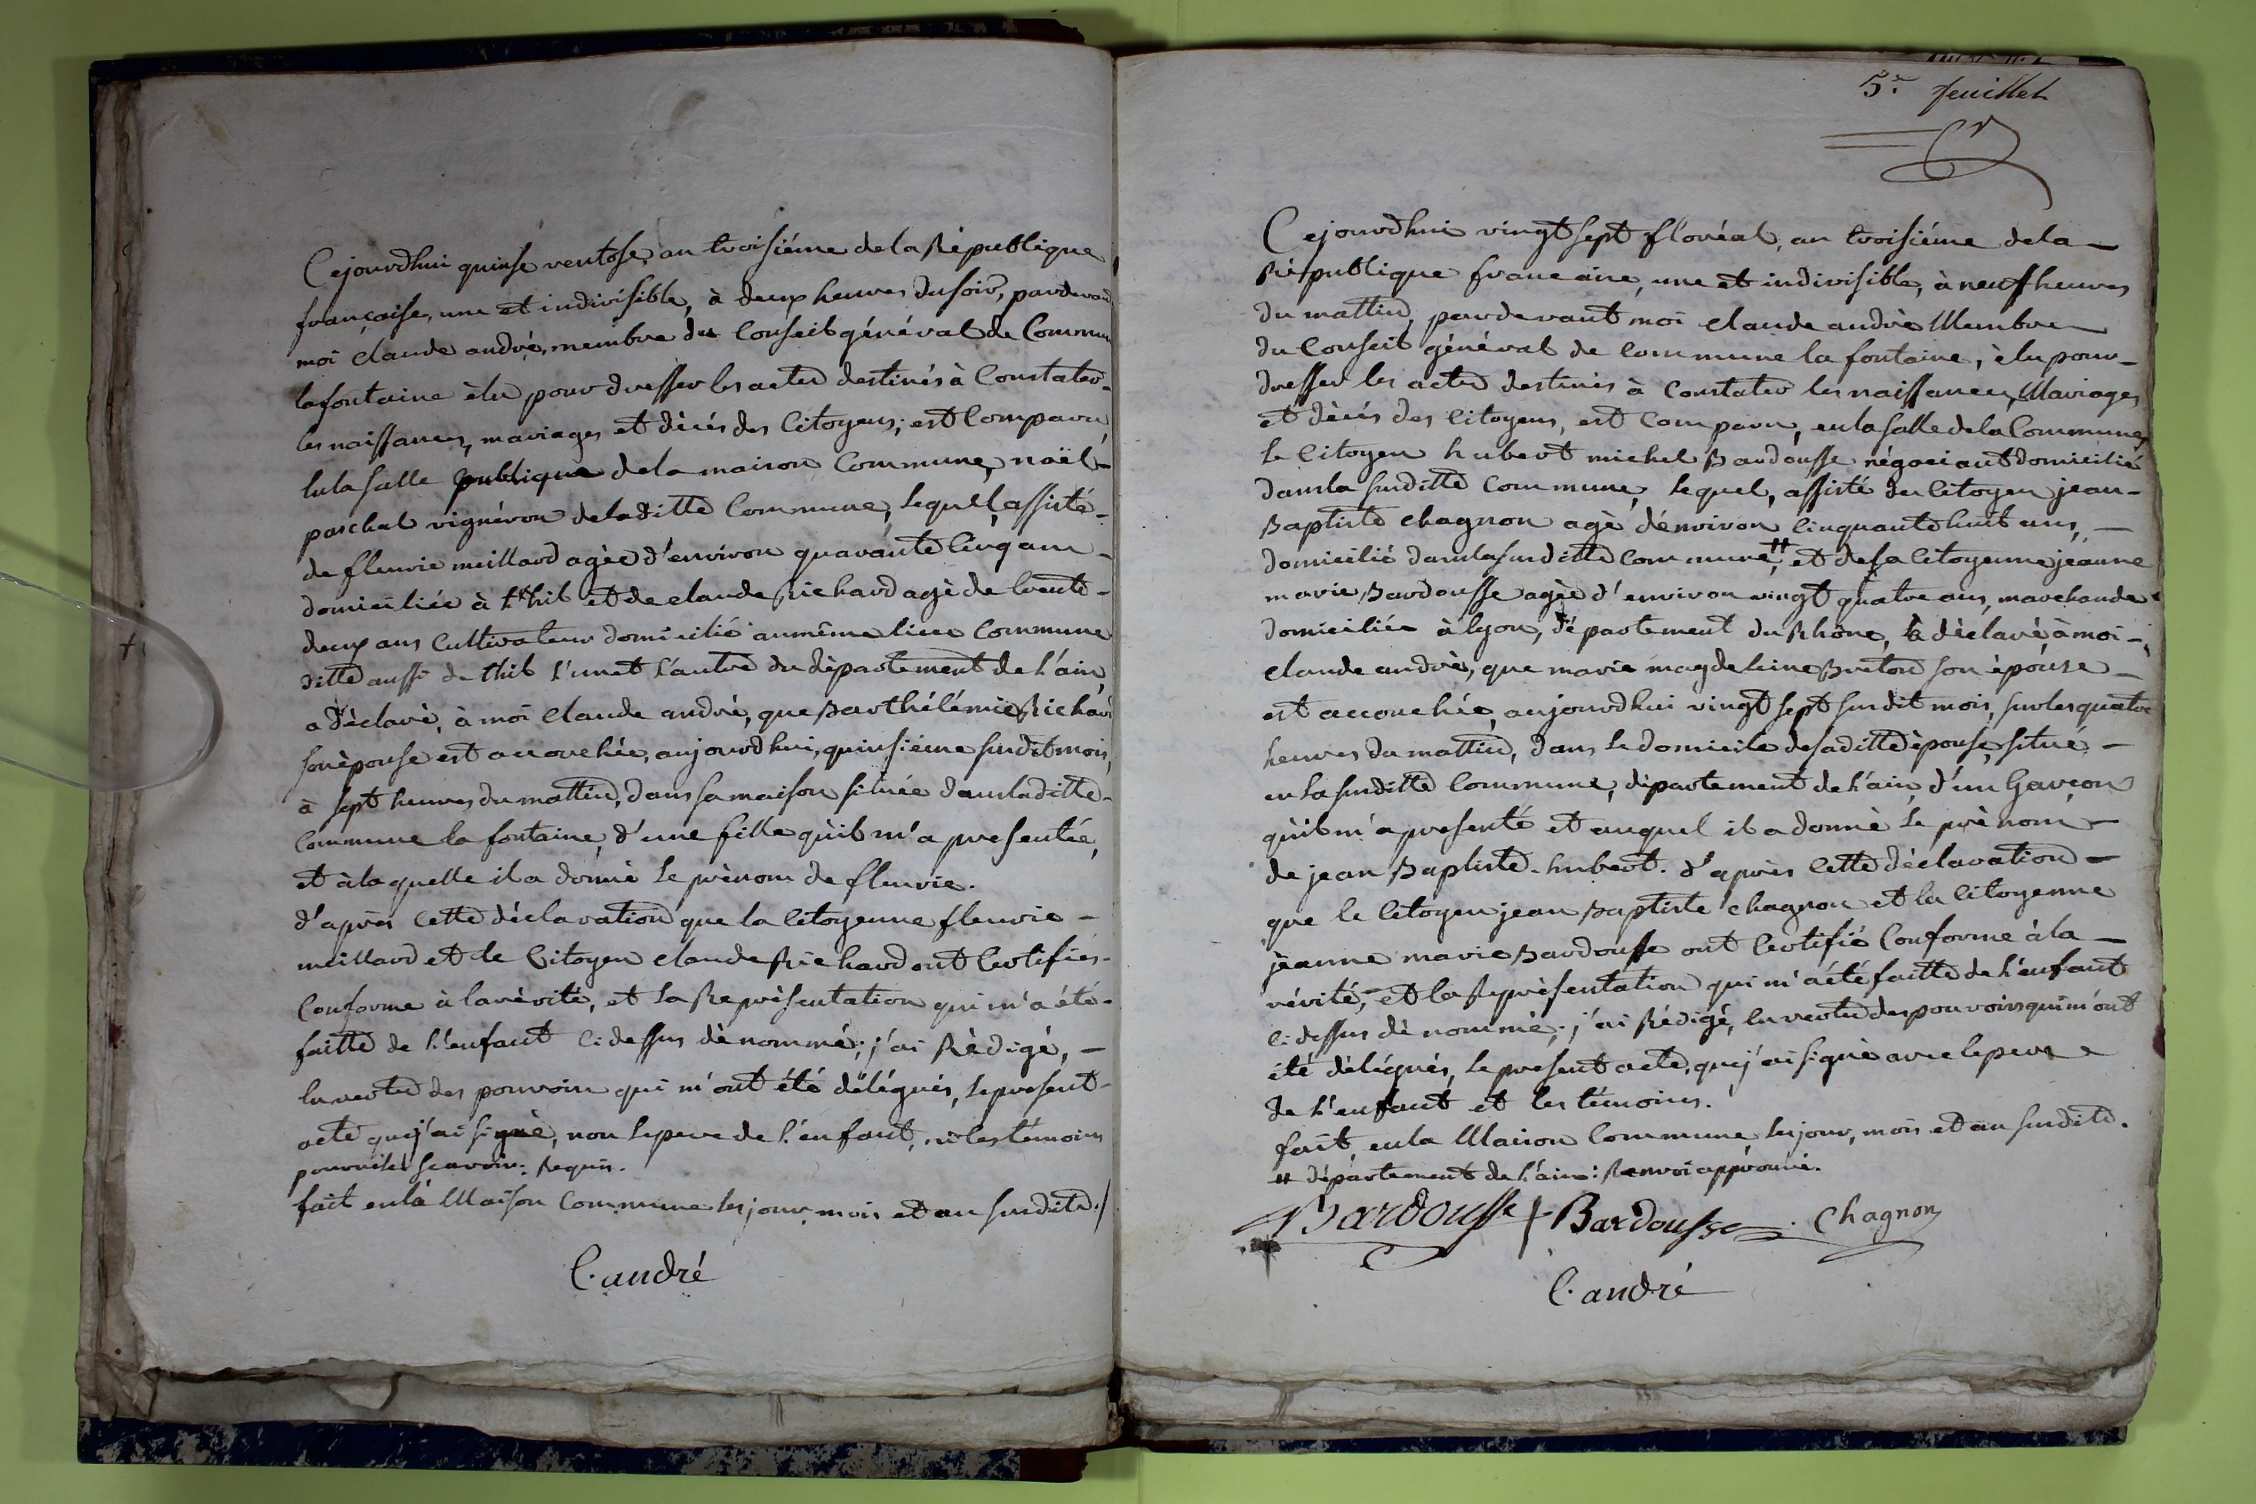 Cejourdhui quinse ventose, an troisiéme de la Rèpublique
française, une et indivisible, à deux heures du soir, pardevant
moi claude andrè, membre du Conseil général de Commune
lafontaine èlu pour dresser les actes destinés à Constater-
les naissances, mariages et dècès des Citoyens; est Comparu
en la salle publique de la maison Commune, noël-
paschal vignéron de la ditte Commune, lequel, assisté-
de fleurie meillard agèe d'environ quarante Cinq ans-
domiciliée à thil et de claude Richard agè de trente-
deux ans Cultivateur domicilié au même lieu Commune
ditte aussi de thil l'un et l'autre du dèpartement de l'ain
a dèclarè, à moi claude andrè, que Barthélémie Richard
son èpouse est accouchée, aujourdhui, quinsiéme susdit mois,
à sept heures du mattin, dans sa maison située dans la ditte-
Commune la fontaine, d'une fille qùil m'a presentée,
et à laquelle il a donnè le prènom de fleurie.
d'après cette dèclaration que la Citoyenne fleurie-
meillard et le Citoyen claude Richard ont Certifiés-
Conforme à la vèrité, et la Reprèsentation qui m'a été-
faitte de l'enfant Ci dessus dènommé; j'ai Rèdigé, -
en vertu des pouvoirs qui m'ont été délégués, le present-
acte que j'ai signè, non le pere de l'enfant, ni les témoins
pour ne le scavoir. Requis.
fait en la Maison Commune les jour, mois et an susdits./
C. andré
5.e feuillet
Cejourdhui vingt sept floréal, an troisiéme de la -
Rèpublique francaise, une et indivisible, à neuf heures
du mattin, pardevant moi claude andrè Membre
du Conseil général de Commune la fontaine, èlu pour-
dresser les actes destinés à Constater les naissances, Mariages
et dècès des Citoyens, est Comparu, en la salle de la Commune,
le Citoyen hubert michel Bardousse négociant domicilié
dans la susditte Commune, lequel, assisté du Citoyen jean-
Baptiste chagnon agè d'environ Cinquante huit ans, -
domicilié dans la susditte Commune, # et de la Citoyenne jeanne
marie Bardousse agèe d'environ vingt quatre ans, marchande
domiciliée à lyon, dépastement du Rhône, a dèclarè à moi-
claude andrè, que marie magdeleine Breton son èpouse -
est accouchée, aujourdhui vingt sept susdit mois, sur les quatre
heures du mattin, dans le domicile de sa ditte èpouse, situé -
en la susditte Commune, dèpartement de l'ain, d'un Garçon
qùil m'a presenté et auquel il a donnè le prènom -
de jean Baptiste-hubert. d'après cette dèclaration -
que le Citoyen jean Baptiste chagnon et la Citoyenne
jeanne marie Bardousse ont Certifié Conforme à la -
vérité, - et la Reprèsentation qui m'a été faitte de l'enfant
Ci dessus dènommé; j'ai Rédigé, en vertu des pouvoirs qui m'ont
été délégués, le present acte, que j'ai signè avec le pere
de l'enfant et les témoins.
fait, en la Maison Commune les jour, mois et an susdits.
# département de l'ain: Renvoi approuvé.
Bardousse Bardousse Chagnon
C. andré